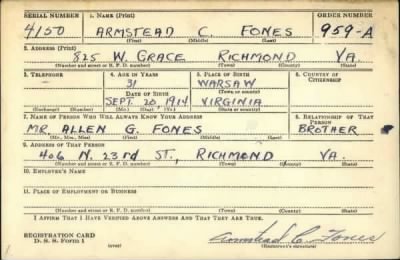 SERIAL NUMBER 1. NAME (Print) ORDER NUMBER
4150 ARMSTEAD C. FONES 959-A
(First) (Middle) (Last)
2. ADDRESS (Print)
825 W. GRACE RICHMOND VA.
(Number and street or R. F. D. number) (Town) (County) (State)
3. TELEPHONE 4. AGE IN YEARS 5. PLACE OF BIRTH 6. COUNTRY OF CITIZENSHIP
31 WARSAW
DATE OF BIRTH (Town or county)
SEPT. 20, 1914 VIRGINIA
(Exchange) (Number) (Mo.) (Day) (Yr.) (State or country)
7. NAME OF PERSON WHO WILL ALWAYS KNOW YOUR ADDRESS 8. RELATIONSHIP OF THAT PERSON
MR. ALLEN G. FONES BROTHER
(Mr., Mrs., Miss) (First) (Middle) (Last)
9. ADDRESS OF THAT PERSON
406 N. 23rd ST., RICHMOND VA.
(Number and street or R. F. D. number) (Town) (County) (State)
10. EMPLOYER'S NAME
11. PLACE OF EMPLOYMENT OR BUSINESS
(Number and street or R. F. D. number) (Town) (County) (State)
I AFFIRM THAT I HAVE VERIFIED ABOVE ANSWERS AND THAT THEY ARE TRUE.
REGISTRATION CARD
D. S. S. Form 1 (over) Armstead C. Fones
(Registrant's signature)